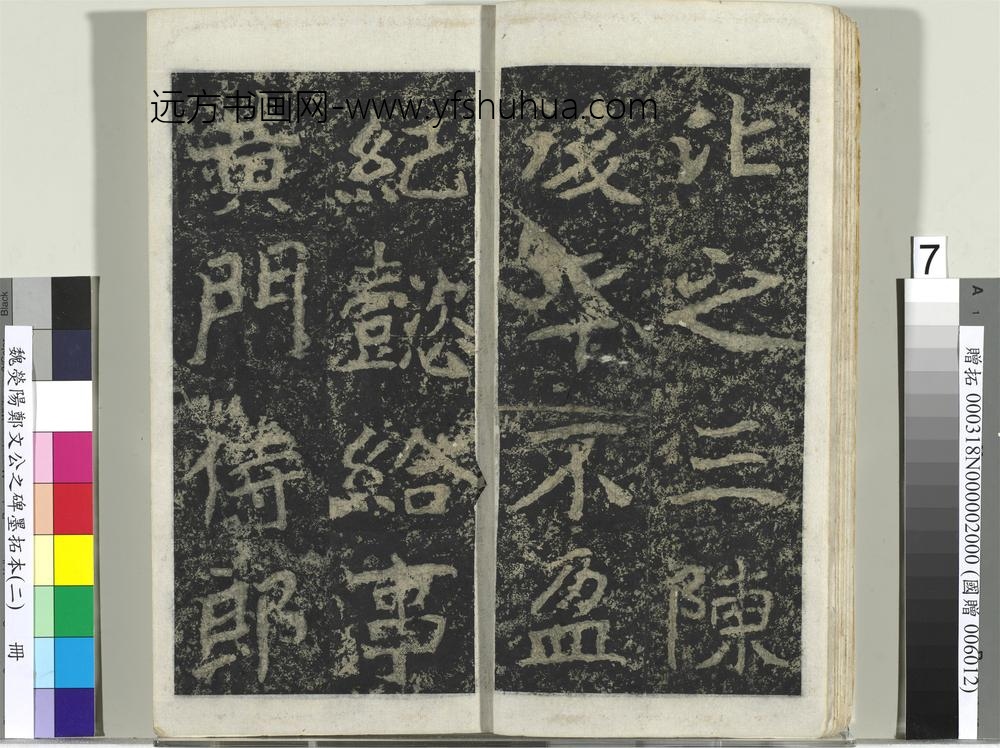 比之三陳
後年不盈
紀懿給事
黃門侍郎
远方书画网-www.yfshuhua.com
7
A
1
贈拓 000318N000002000 (國贈 006012)
Black
魏滎陽鄭文公之碑墨拓本(二) 冊